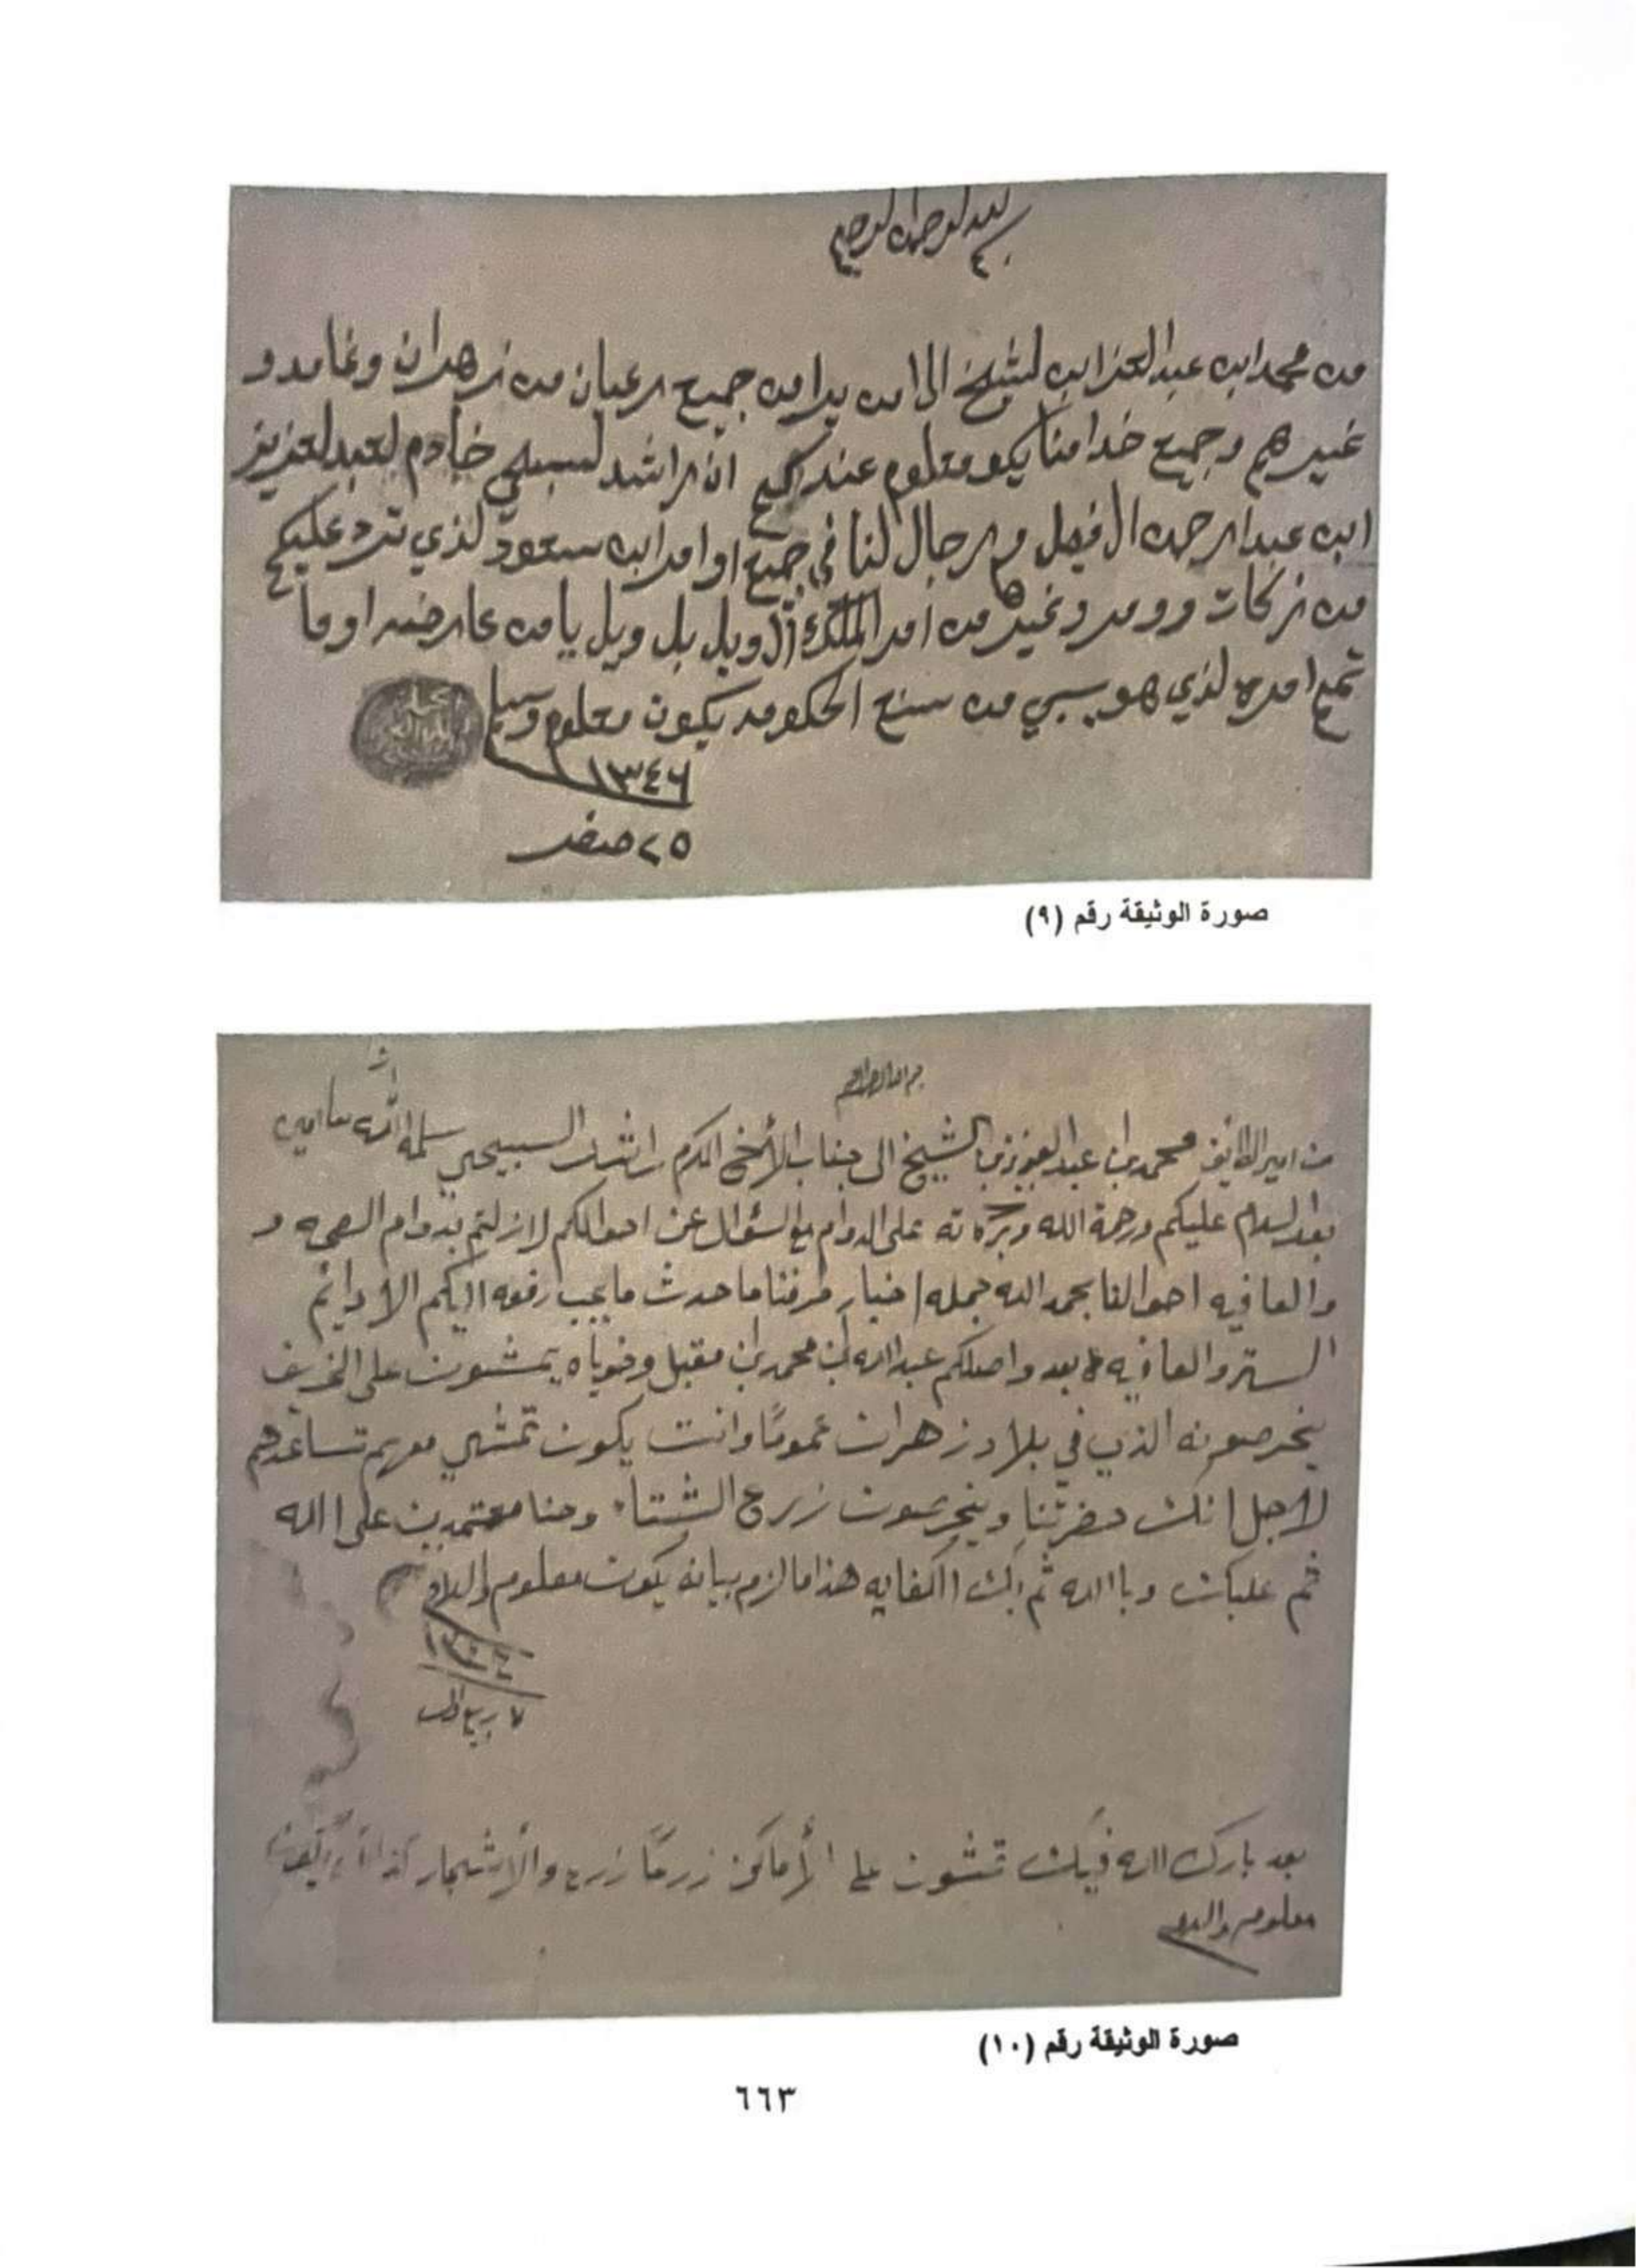 بسم الله الرحمن الرحيم
من محمد ابن عبد العزابن لشيخ الى من يرا من جميع رعيان من زهران وغامد و
غيرهم وجميع خدامنا يكو معلوم عندكم ان راشد لسبيحي خادم لعبد لعزيز
ابن عبدا رحمن ال فيصل ورجال لنا في جميع اوامر ابن سعود لذي ترد عليكم
من زكات وومر وغيرها من امر الملك ويل بل ويل يا من عارضه او ما
تمع امره لذي هو يسبي من سنع الحكومه يكون معلوم
١٣٤٦
٢٥ صفر
صورة الوثيقة رقم (٩)
من امير الطايف محمد بن عبد العزيز بن الشيخ الى جناب الأخ المكرم راشد السبيحي سلمه الله تعا امين
بعد السلام عليكم ورحمة الله وبركاته على الدوام مع السئوال عن احوالكم لازلتم بدوام الصحه و
والعافيه احوالنا بحمد الله جمله اخبار طرفنا ما حدث ما يجب رفعه اليكم الا دائم
الستر والعافيه بعد واصلكم عبد الله بن محمد بن مقبل وخوياه يمشون على الخريف
يخرصونه الذي في بلاد زهران عمومًا وانت يكون تمشي معهم تساعدهم
لاجل انك حضرتنا ويخرصون زرع الشتاء وحنا معتمدين على الله
ثم عليك وبا الله ثم بك الكفايه هذا ما لزم بيانه يكون معلوم والسلام
٧ ربيع
بعد بارك الله فيك تمشون على الأماكن زرعًا زرع والأشجار
معلوم والسلام
صورة الوثيقة رقم (١٠)
٦٦٣